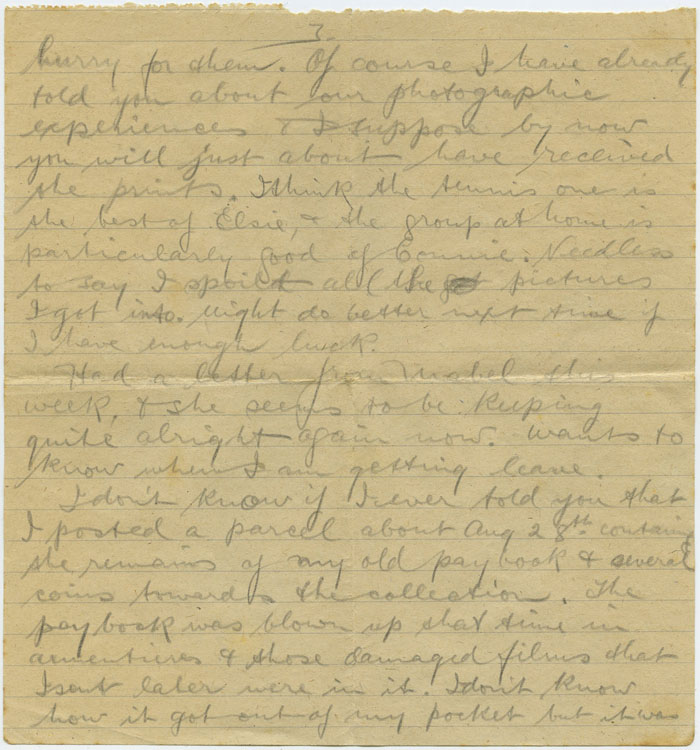 7.
hurry for them. Of course I have already
told you about our photographic
experiences & I suppose by now
you will just about have received
the prints. I think the tennis one is
the best of Elsie, & the group at home is
particularly good of Connie. Needless
to say I spoilt all the pictures
I got into. Might do better next time if
I have enough luck.
Had a letter from Mabel this
week, & she seems to be keeping
quite alright again now. Wants to
know when I am getting leave.
I don't know if I ever told you that
I posted a parcel about Aug 28th containing
the remains of my old paybook & several
coins towards the collection. The
paybook was blown up that time in
armentieres & those damaged films that
I sent later were in it. I don't know
how it got out of my pocket but it was